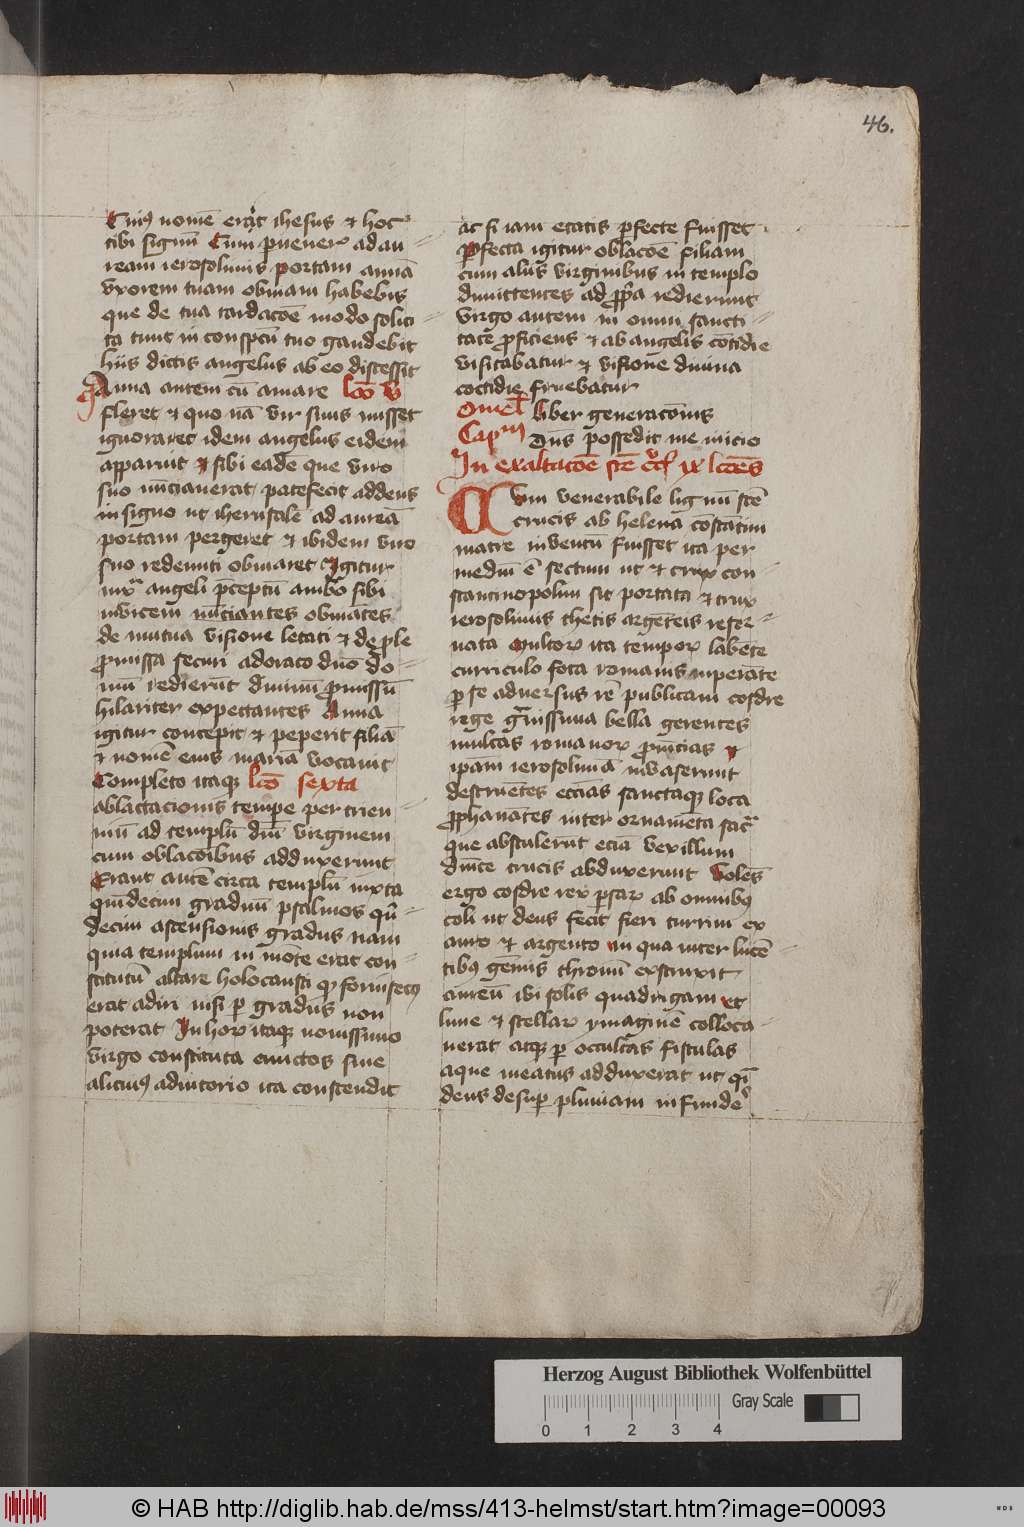 46.
Cui9 nomē erit ihesus et hoc
tibi signū Cum pueneris ad au
ream ierosolimis portam annā
vxorem tuam obuiam habebis
que de tua tardacōe modo solici
ta tunc in conspectu tuo gaudebit
hiis dictis angelus ab eo discessit
Anna autem cū amare lcō v
fleret et quo nā vir suus iuisset
ignoraret idem angelus eidem
apparuit et sibi eadē que viro
suo nūnciauerat patefecit addens
in signo ut iherusalē ad aureā
portam pergeret et ibidem viro
suo redeunti obuiaret Igitur
iux angeli pceptū ambo sibi
inuicem nūnciantes obuiātes
de mutua visione letati et de ple
promissa securi adorato dnō do
mū redierūt diuinū promissū
hilariter expectantes Anna
igitur concepit et peperit filiā
et nomē eius mariā vocauit
Completo itaque lcō sexta
ablactacionis tempe per trien
niū ad templū dnī virginem
cum oblacōibus adduxerunt
Erant autē circa templū iuxta
quīdecim graduū psalmos quī
decim ascensionis gradus nam
quia templum in mōte erat con
stitutū altare holocausti qd forinsecus
erat adiri nisi p gradus non
poterat In hoȝ itaque nouissimo
virgo constituta cunctos sine
alicui9 adiutorio ita conscendit
ac si iam etatis pfecte fuisset
pfecta igitur oblacōe filiam
cum aliis virginibus in templo
dimittentes ad ppria redierunt
virgo autem in omni sancti
tate proficiens et ab angelis cotidie
visitabatur et visione diuina
coctidie fruebatur
Omel Liber generacōnis
Capm Dūs possedit me inicio
In exaltacōe scē crucis ix lcōēs
Cum venerabile lignū scē
crucis ab helena cōstātini
matre inuentū fuisset ita per
mediū ē sectum ut et crux con
stantinopolim sit portata et crux
ierosolimis thecis argēteis reser
uata Multorum ita temporum labēte
curriculo fota romanis imperāte
p se aduersus rē publicam cosdre
rege grauissima bella gerentes
multas romanorum prouīcias et
ipam ierosolimā inuaserunt
destruētes ecciās sanctaque loca
prophanātes inter ornamēta sacra
que abstulerūt eciā vexillum
dnice crucis abduxerunt Volēs
ergo cosdre rex psarum ab omnibus
coli ut deus fecit fieri turrim ex
auro et argento in qua inter lucē
tib9 gēmis thronū exstruxit
aureū ibi solis quadrigam et
lune et stellarum ymaginē colloca
uerat atque p occultas fistulas
aque meatus adduxerat ut quasi
deus desuper pluuiam infunde
Herzog August Bibliothek Wolfenbüttel
Gray Scale
0 1 2 3 4
© HAB http://diglib.hab.de/mss/413-helmst/start.htm?image=00093